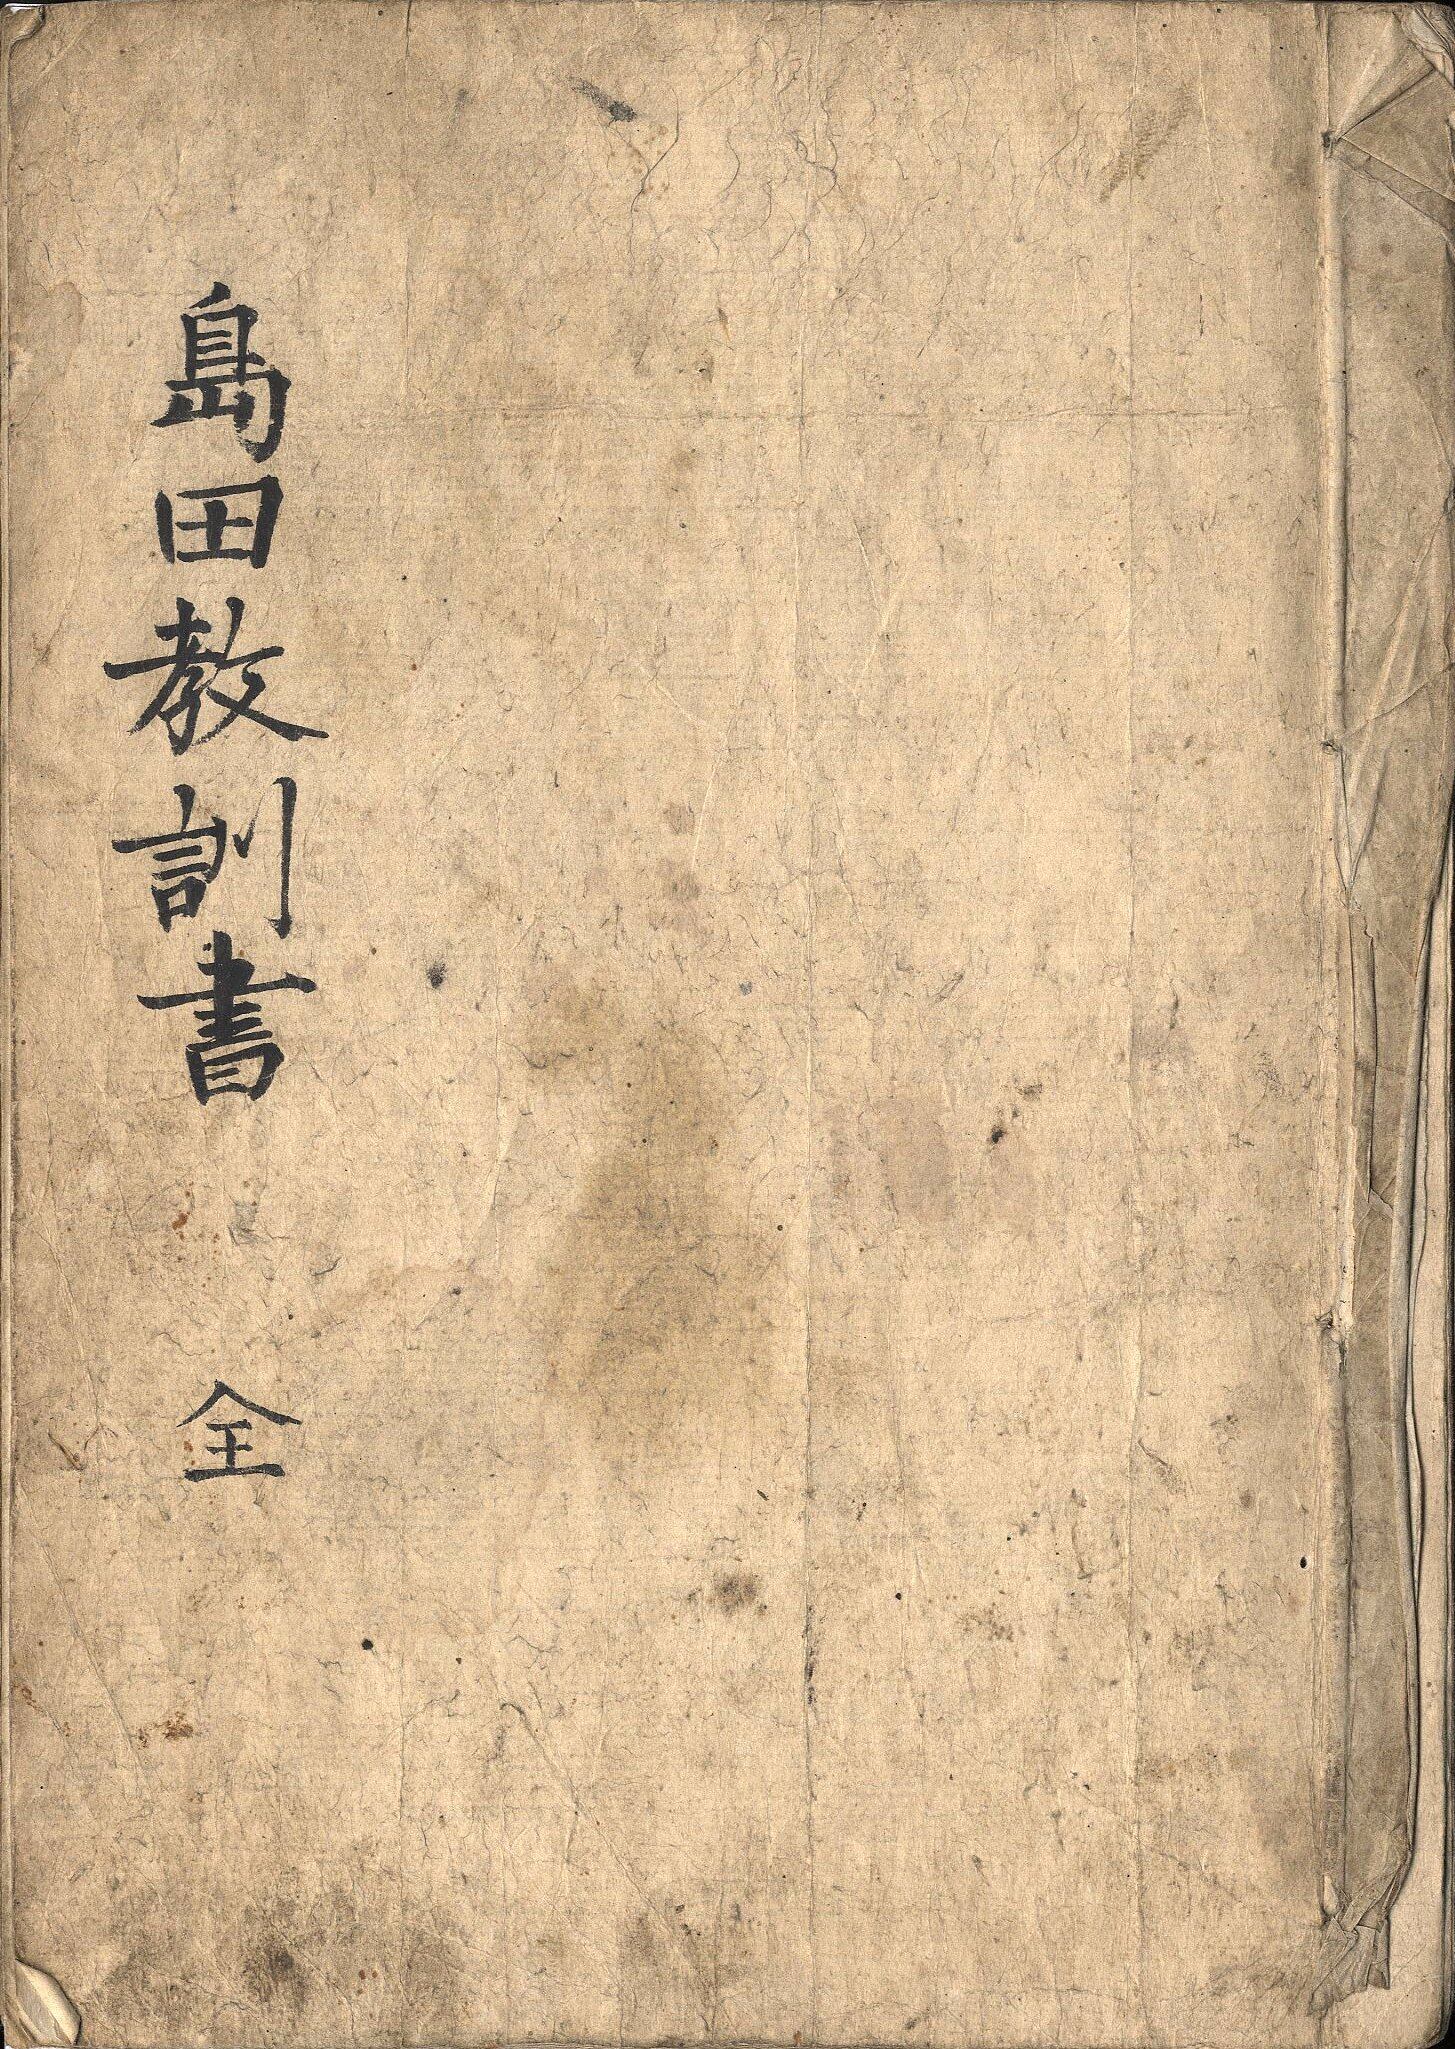 島田教訓書 全